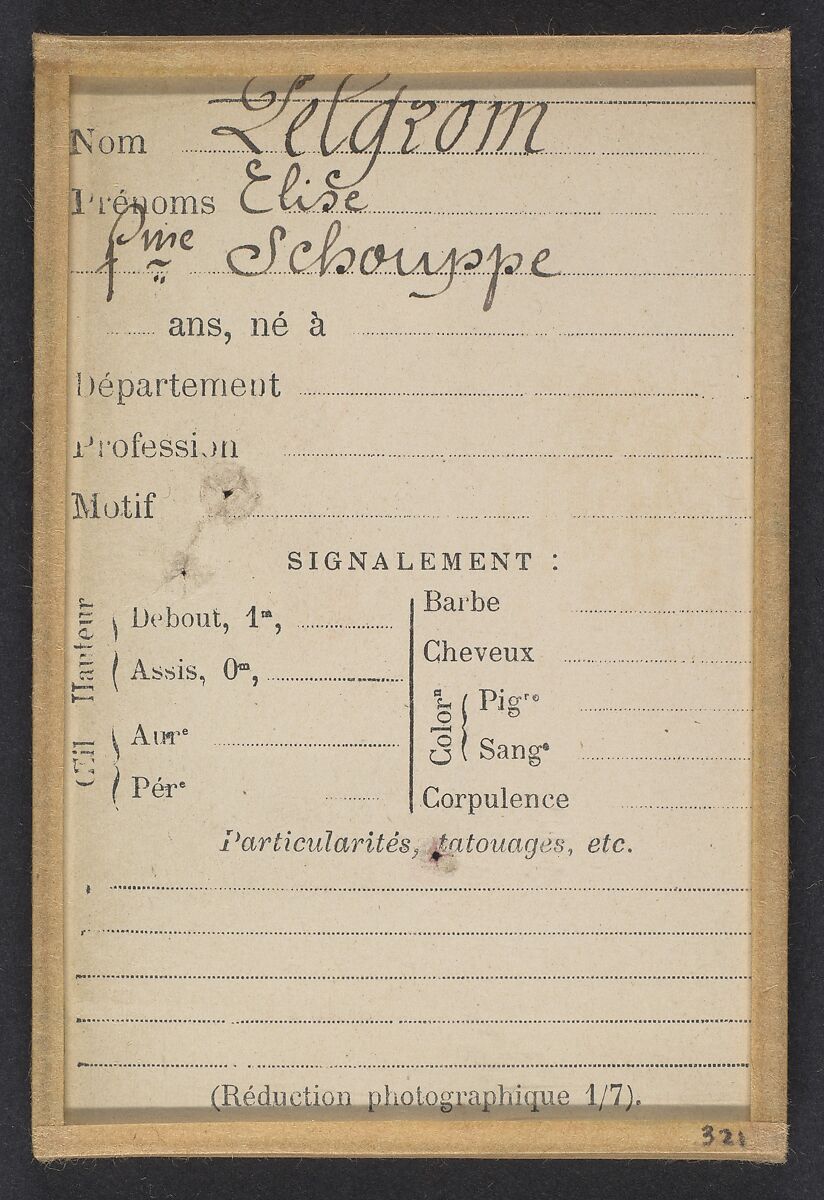 Nom Pelgrom
Prénoms Elise
fme Schouppe
ans, né à
Département
Profession
Motif
SIGNALEMENT :
Hauteur
Debout, 1m,
Assis, 0m,
Œil
Aure
Pére
Barbe
Cheveux
Colorn
Pigre
Sange
Corpulence
Particularités, tatouages, etc.
(Réduction photographique 1/7).
321